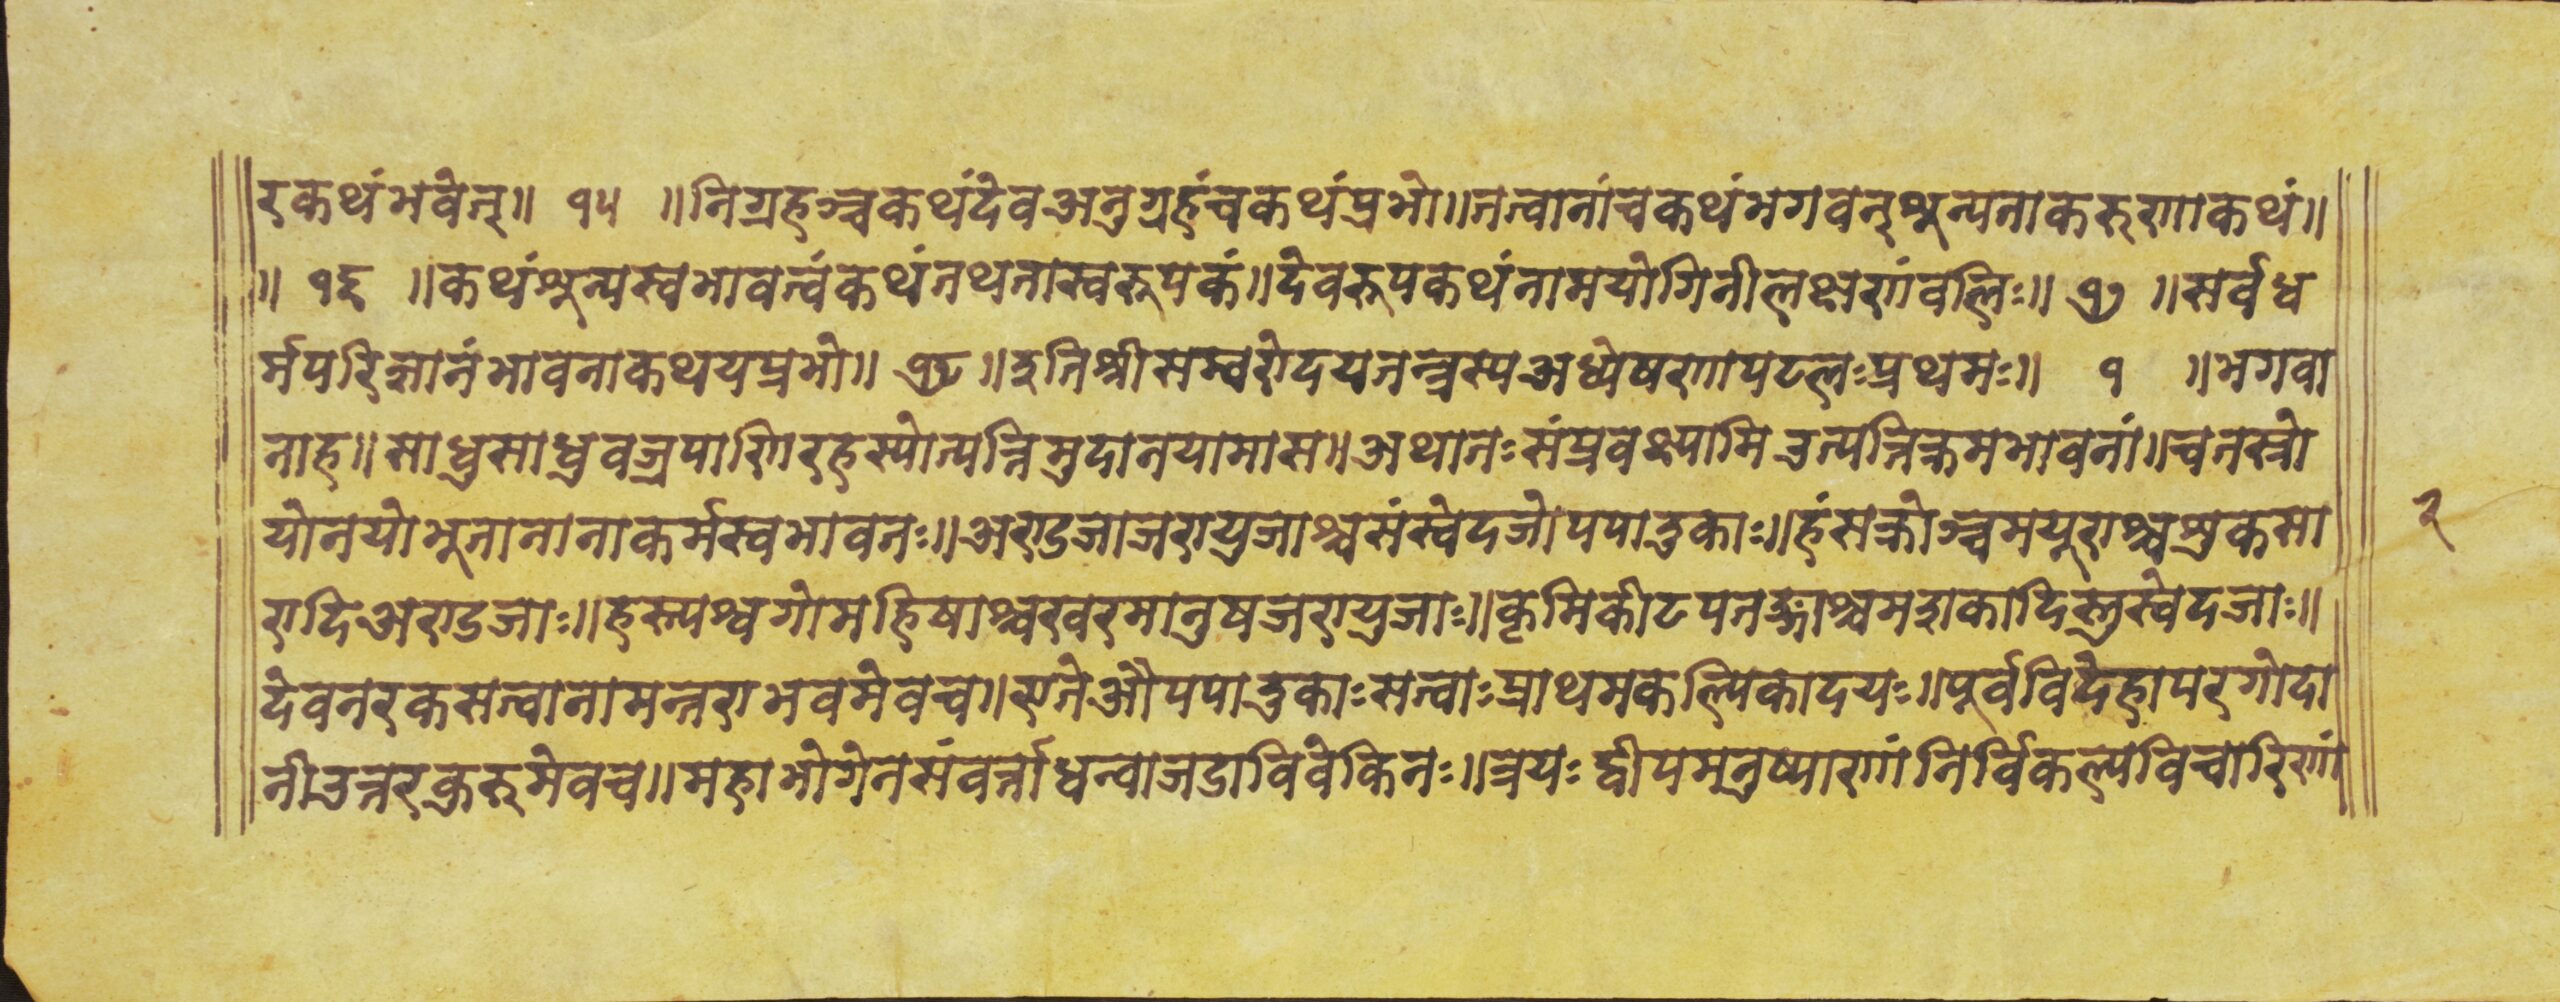 रकथंभवेत्॥ १५ ॥निग्रहञ्चकथंदेवअनुग्रहंचकथंप्रभो॥तत्वानांचकथंभगवन्शून्यताकरुणाकथं॥
॥ १६ ॥कथंशून्यस्वभावत्वंकथंतथतास्वरूपकं॥देवरूपकथंनामयोगिनीलक्षणंवलिः॥ १७ ॥सर्वध
र्मपरिज्ञानंभावनाकथयप्रभो॥ १८ ॥इतिश्रीसम्वरोदयतन्त्रस्यअध्येषणापटलःप्रथमः॥ १ ॥भगवा
नाह॥साधुसाधुवज्रपाणिरहस्योत्पत्तिमुदानयामास॥अथातःसंप्रवक्ष्यामिउत्पत्तिक्रमभावनां॥चतस्रो
योनयोभूतानानाकर्मस्वभावतः॥अण्डजाजरायुजाश्चसंस्वेदजोपपादुकाः॥हंसक्रोञ्चमयूराश्चशुकसा
रादिअण्डजाः॥हस्त्यश्वगोमहिषाश्चखरमानुषजरायुजाः॥कृमिकीटपतङ्गाश्चमशकादिस्तुस्वेदजाः॥
देवनरकसत्वानामन्तराभवमेवच॥एतेऔपपादुकाःसत्वाःप्राथमकल्पिकादयः॥पूर्वविदेहापरगोदा
नीउत्तरकुरुमेवच॥महाभोगेनसंवर्त्ताधन्वाजडाविवेकिनः॥त्रयःद्वीपमनुष्याणांनिर्विकल्पविचारिणां
२